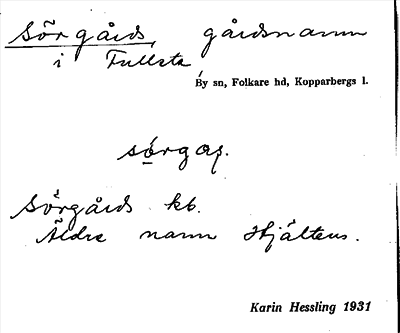 Sörgårds, gårdsnamn
i Fullsta
By sn, Folkare hd, Kopparbergs l.
Sörgårds kb.
Äldre namn Hjältens.
Karin Hessling 1931